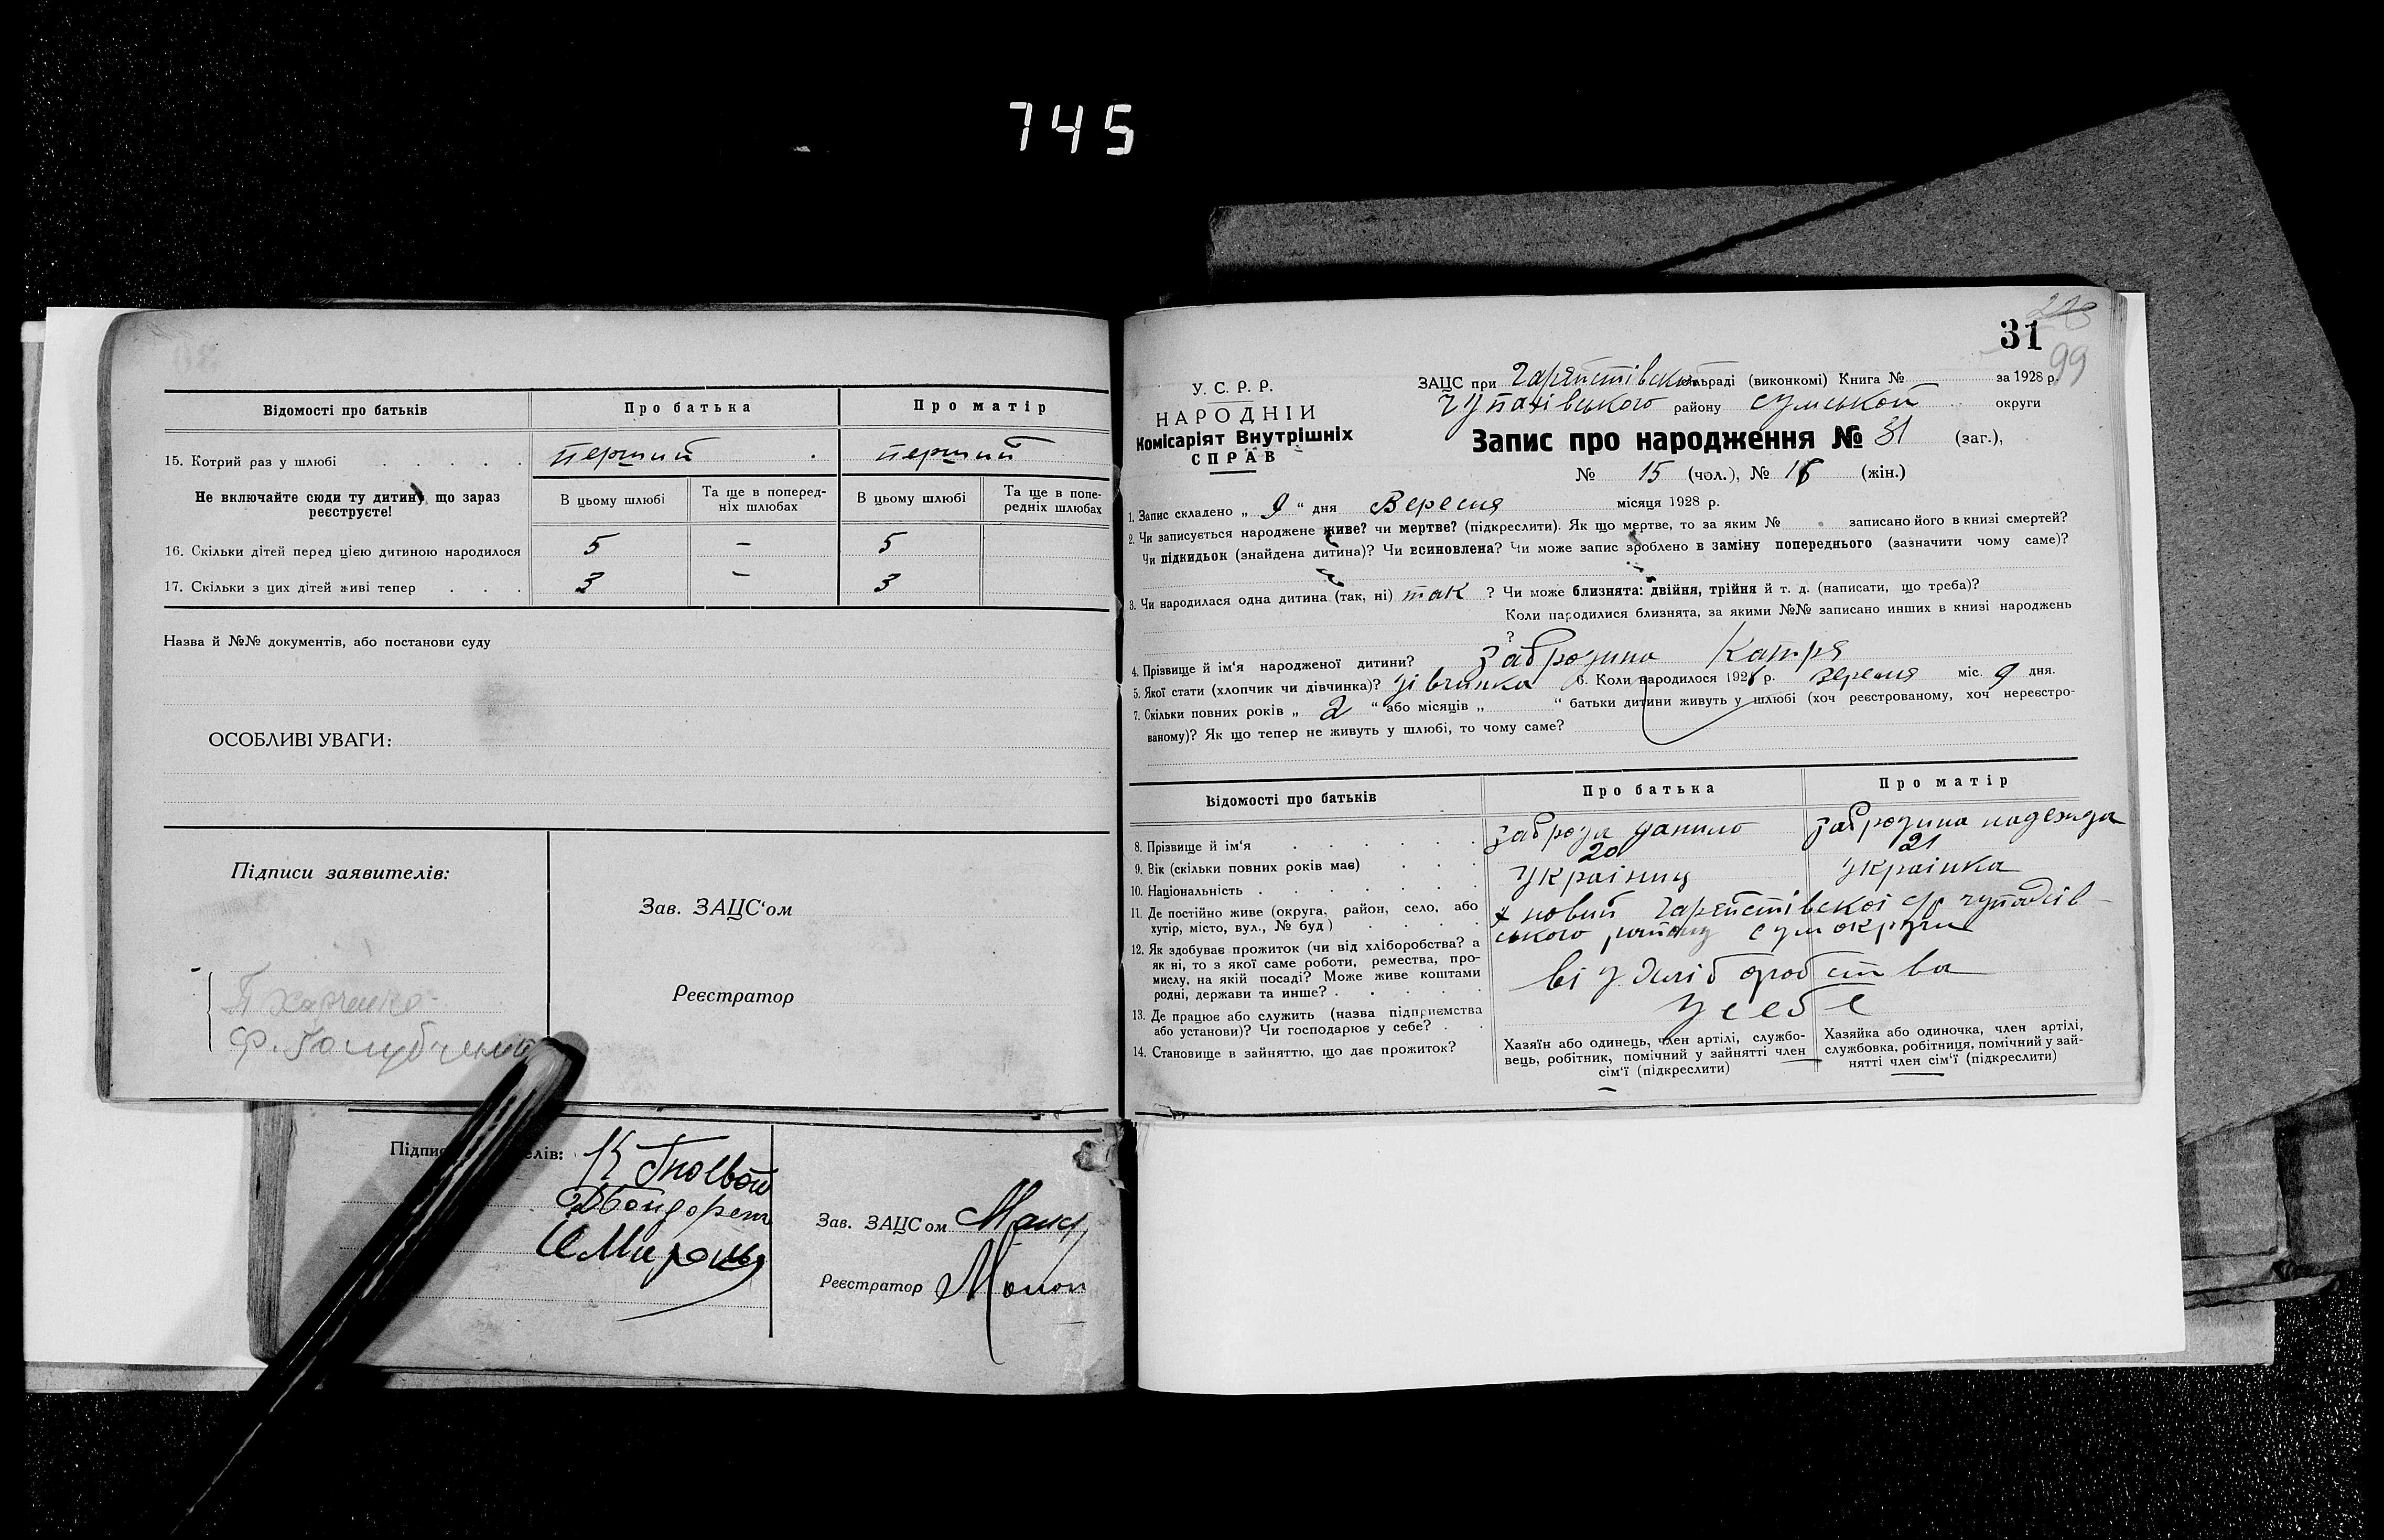 745
Відомості про батьків
Про батька
Про матір
15. Котрий раз у шлюбі . . . . .
перший
перший
Не включайте сюди ту дитину, що зараз
реєструєте!
В цьому шлюбі
Та ще в поперед-
ніх шлюбах
В цьому шлюбі
Та ще в попе-
редніх шлюбах
16. Скільки дітей перед цією дитиною народилося
5 – 5
17. Скільки з цих дітей живі тепер . . .
3 – 3
Назва й №№ документів, або постанови суду
ОСОБЛИВІ УВАГИ:
Підписи заявителів:
Зав. ЗАЦС'ом
Реєстратор
П Харченко
Ф. Голубчий
Зав. ЗАЦСом
Реєстратор
31
99
У. С. Р. Р.
НАРОДНІЙ
Комісаріят Внутрішніх
СПРАВ
ЗАЦС при сільраді (виконкомі) Книга № за 1928 р.
Чупахівського району Сумської округи
Запис про народження № 31 (заг.),
№ 15 (чол.), № 16 (жін.)
1. Запис складено „ 9 “ дня Вересня місяця 1928 р.
2. Чи записується народжене живе? чи мертве? (підкреслити). Як що мертве, то за яким № записано його в книзі смертей?
Чи підкидьок (знайдена дитина)? Чи всиновлена? Чи може запис зроблено в заміну попереднього (зазначити чому саме)?
3. Чи народилася одна дитина (так, ні) так ? Чи може близнята: двійня, трійня й т. д. (написати, що треба)?
Коли народилися близнята, за якими №№ записано инших в книзі народжень
?
4. Прізвище й ім'я народженої дитини? Забродина Катря
5. Якої стати (хлопчик чи дівчинка)? дівчинка 6. Коли народилося 1928 р. вересня міс. 9 дня.
7. Скільки повних років „ 2 “ або місяців „ “ батьки дитини живуть у шлюбі (хоч реєстрованому, хоч нереєстро-
ваному)? Як що тепер не живуть у шлюбі, то чому саме?
Відомості про батьків
Про батька
Про матір
8. Прізвище й ім'я . . . . . .
Заброда Данило
Забродина Надежда
9. Вік (скільки повних років має) . . .
20
21
10. Національність . . . . . . .
Украінец
Украінка
11. Де постійно живе (округа, район, село, або
хутір, місто, вул., № буд) . . . .
х новий
ського району Сумокруги
12. Як здобуває прожиток (чи від хліборобства? а
як ні, то з якої саме роботи, ремества, про-
мислу, на якій посаді? Може живе коштами
родні, держави та инше? . . . . .
від хліборобства
13. Де працює або служить (назва підприємства
або установи)? Чи господарює у себе? . .
У себе
14. Становище в зайняттю, що дає прожиток?
Хазяїн або одинець, член артілі, службо-
вець, робітник, помічний у зайнятті член
сім'ї (підкреслити)
Хазяйка або одиночка, член артілі,
службовка, робітниця, помічний у зай-
нятті член сім'ї (підкреслити)